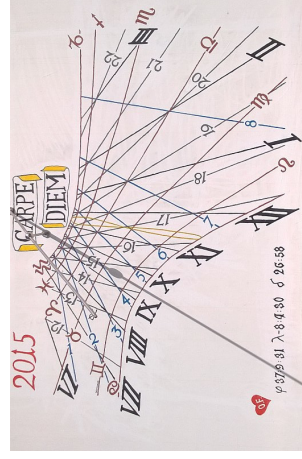 2015
CARPE
DIEM
VI
VII
VIII
IX
X
XI
XII
I
II
III
♉
♊
♋
♌
♍
♎
♏
♐
♑
♒
♓
♈
1
2
3
4
5
6
7
8
13
14
15
16
17
18
19
20
21
22
φ 37:9:31 λ-8:4:30 δ 26:58